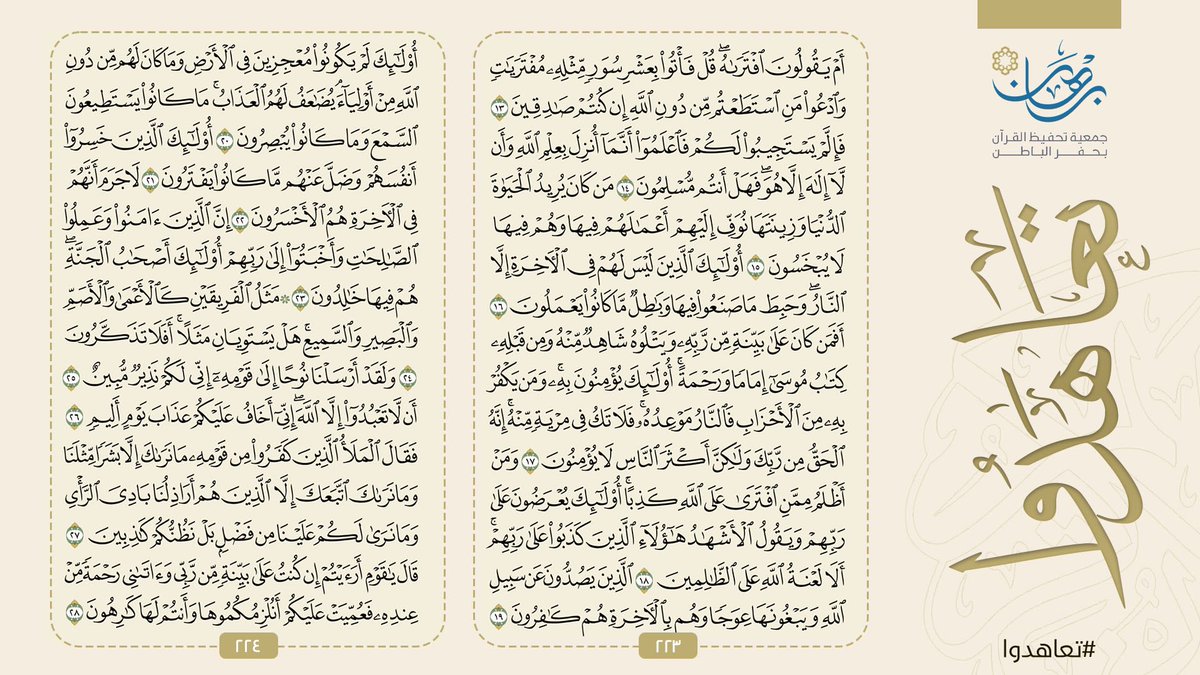 أَمْ يَقُولُونَ ٱفْتَرَىٰهُۖ قُلْ فَأْتُوا۟ بِعَشْرِ سُوَرٍ مِّثْلِهِۦ مُفْتَرَيَٰتٍ
وَٱدْعُوا۟ مَنِ ٱسْتَطَعْتُم مِّن دُونِ ٱللَّهِ إِن كُنتُمْ صَٰدِقِينَ ١٣
فَإِلَّمْ يَسْتَجِيبُوا۟ لَكُمْ فَٱعْلَمُوٓا۟ أَنَّمَآ أُنزِلَ بِعِلْمِ ٱللَّهِ وَأَن
لَّآ إِلَٰهَ إِلَّا هُوَۖ فَهَلْ أَنتُم مُّسْلِمُونَ ١٤ مَن كَانَ يُرِيدُ ٱلْحَيَوٰةَ
ٱلدُّنْيَا وَزِينَتَهَا نُوَفِّ إِلَيْهِمْ أَعْمَٰلَهُمْ فِيهَا وَهُمْ فِيهَا
لَا يُبْخَسُونَ ١٥ أُو۟لَٰٓئِكَ ٱلَّذِينَ لَيْسَ لَهُمْ فِى ٱلْءَاخِرَةِ إِلَّا
ٱلنَّارُۖ وَحَبِطَ مَا صَنَعُوا۟ فِيهَا وَبَٰطِلٌ مَّا كَانُوا۟ يَعْمَلُونَ ١٦
أَفَمَن كَانَ عَلَىٰ بَيِّنَةٍ مِّن رَّبِّهِۦ وَيَتْلُوهُ شَاهِدٌ مِّنْهُ وَمِن قَبْلِهِۦ
كِتَٰبُ مُوسَىٰٓ إِمَامًا وَرَحْمَةًۚ أُو۟لَٰٓئِكَ يُؤْمِنُونَ بِهِۦۚ وَمَن يَكْفُرْ
بِهِۦ مِنَ ٱلْأَحْزَابِ فَٱلنَّارُ مَوْعِدُهُۥۚ فَلَا تَكُ فِى مِرْيَةٍ مِّنْهُۚ إِنَّهُ
ٱلْحَقُّ مِن رَّبِّكَ وَلَٰكِنَّ أَكْثَرَ ٱلنَّاسِ لَا يُؤْمِنُونَ ١٧ وَمَنْ
أَظْلَمُ مِمَّنِ ٱفْتَرَىٰ عَلَى ٱللَّهِ كَذِبًاۚ أُو۟لَٰٓئِكَ يُعْرَضُونَ عَلَىٰ
رَبِّهِمْ وَيَقُولُ ٱلْأَشْهَٰدُ هَٰٓؤُلَآءِ ٱلَّذِينَ كَذَبُوا۟ عَلَىٰ رَبِّهِمْۚ
أَلَا لَعْنَةُ ٱللَّهِ عَلَى ٱلظَّٰلِمِينَ ١٨ ٱلَّذِينَ يَصُدُّونَ عَن سَبِيلِ
ٱللَّهِ وَيَبْغُونَهَا عِوَجًا وَهُم بِٱلْءَاخِرَةِ هُمْ كَٰفِرُونَ ١٩
٢٢٣
أُو۟لَٰٓئِكَ لَمْ يَكُونُوا۟ مُعْجِزِينَ فِى ٱلْأَرْضِ وَمَا كَانَ لَهُم مِّن دُونِ
ٱللَّهِ مِنْ أَوْلِيَآءَۘ يُضَٰعَفُ لَهُمُ ٱلْعَذَابُۚ مَا كَانُوا۟ يَسْتَطِيعُونَ
ٱلسَّمْعَ وَمَا كَانُوا۟ يُبْصِرُونَ ٢٠ أُو۟لَٰٓئِكَ ٱلَّذِينَ خَسِرُوٓا۟
أَنفُسَهُمْ وَضَلَّ عَنْهُم مَّا كَانُوا۟ يَفْتَرُونَ ٢١ لَا جَرَمَ أَنَّهُمْ
فِى ٱلْءَاخِرَةِ هُمُ ٱلْأَخْسَرُونَ ٢٢ إِنَّ ٱلَّذِينَ ءَامَنُوا۟ وَعَمِلُوا۟
ٱلصَّٰلِحَٰتِ وَأَخْبَتُوٓا۟ إِلَىٰ رَبِّهِمْ أُو۟لَٰٓئِكَ أَصْحَٰبُ ٱلْجَنَّةِۖ
هُمْ فِيهَا خَٰلِدُونَ ٢٣ ۞ مَثَلُ ٱلْفَرِيقَيْنِ كَٱلْأَعْمَىٰ وَٱلْأَصَمِّ
وَٱلْبَصِيرِ وَٱلسَّمِيعِۚ هَلْ يَسْتَوِيَانِ مَثَلًاۚ أَفَلَا تَذَكَّرُونَ
٢٤ وَلَقَدْ أَرْسَلْنَا نُوحًا إِلَىٰ قَوْمِهِۦٓ إِنِّى لَكُمْ نَذِيرٌ مُّبِينٌ ٢٥
أَن لَّا تَعْبُدُوٓا۟ إِلَّا ٱللَّهَۖ إِنِّىٓ أَخَافُ عَلَيْكُمْ عَذَابَ يَوْمٍ أَلِيمٍ ٢٦
فَقَالَ ٱلْمَلَأُ ٱلَّذِينَ كَفَرُوا۟ مِن قَوْمِهِۦ مَا نَرَىٰكَ إِلَّا بَشَرًا مِّثْلَنَا
وَمَا نَرَىٰكَ ٱتَّبَعَكَ إِلَّا ٱلَّذِينَ هُمْ أَرَاذِلُنَا بَادِىَ ٱلرَّأْىِ
وَمَا نَرَىٰ لَكُمْ عَلَيْنَا مِن فَضْلٍۭ بَلْ نَظُنُّكُمْ كَٰذِبِينَ ٢٧
قَالَ يَٰقَوْمِ أَرَءَيْتُمْ إِن كُنتُ عَلَىٰ بَيِّنَةٍ مِّن رَّبِّى وَءَاتَىٰنِى رَحْمَةً مِّنْ
عِندِهِۦ فَعُمِّيَتْ عَلَيْكُمْ أَنُلْزِمُكُمُوهَا وَأَنتُمْ لَهَا كَٰرِهُونَ ٢٨
٢٢٤
برهان
جمعية تحفيظ القرآن
بحفر الباطن
تعاهدوا
#تعاهدوا